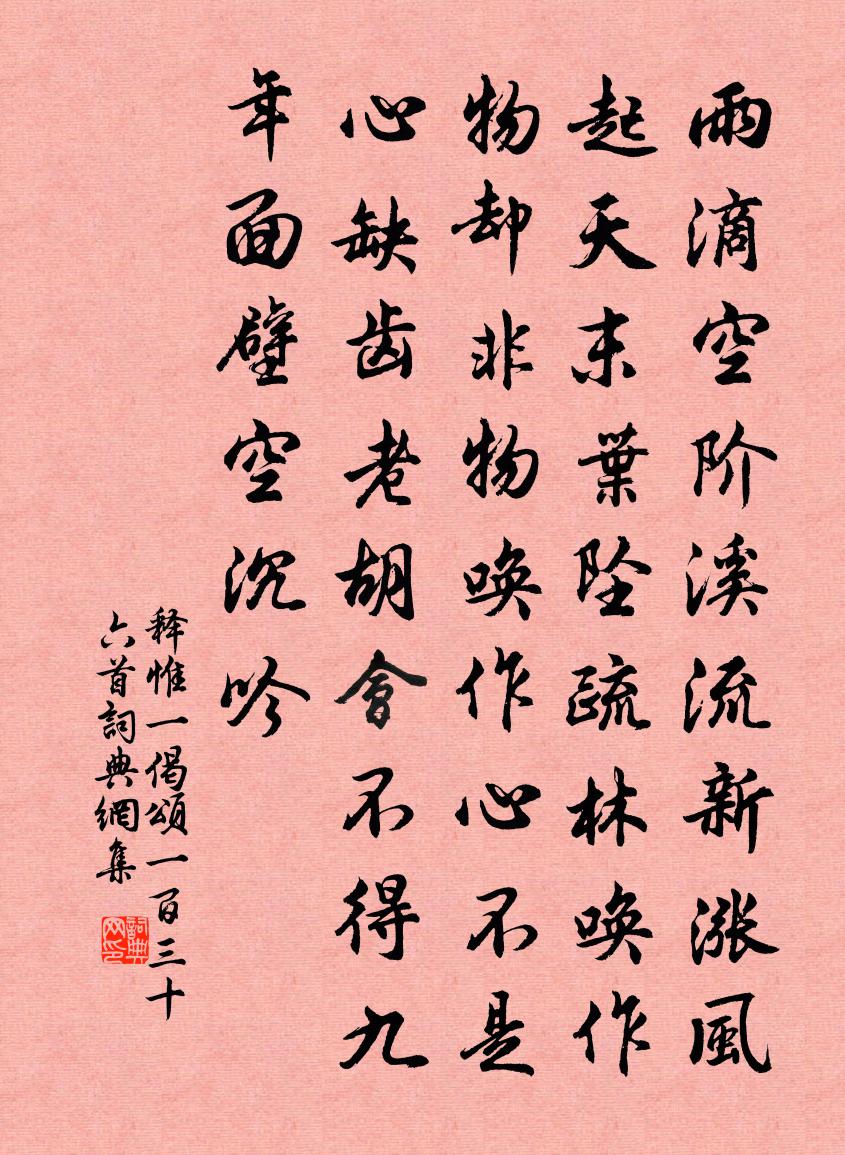 雨滴空阶溪流新涨風
起天末葉坠疏林唤作
物却非物唤作心不是
心缺齿老胡會不得九
年面壁空沉吟
释惟一偈頌一百三十
六首詞典網集
詞典
网印